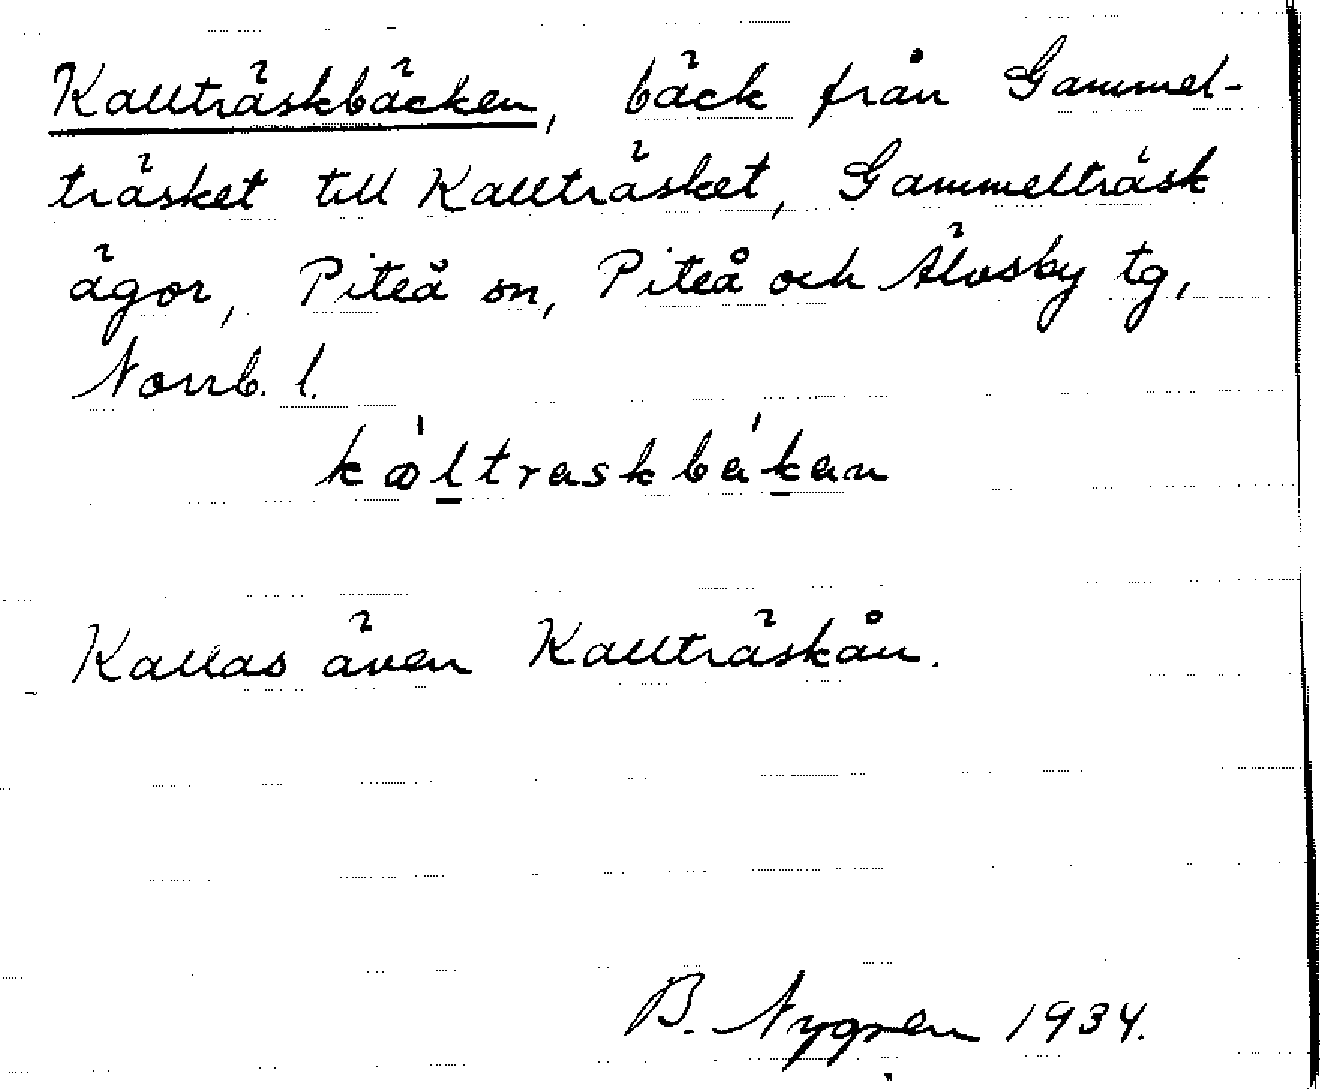 Kallträskbäcken, bäck från Gammel-
träsket till Kallträsket, Gammelträsk
ägor, Piteå sn, Piteå och Älvsby tg,
Norrb. l.
kaltraskbäkan
Kallas även Kallträskån.
B. Nygren 1934.